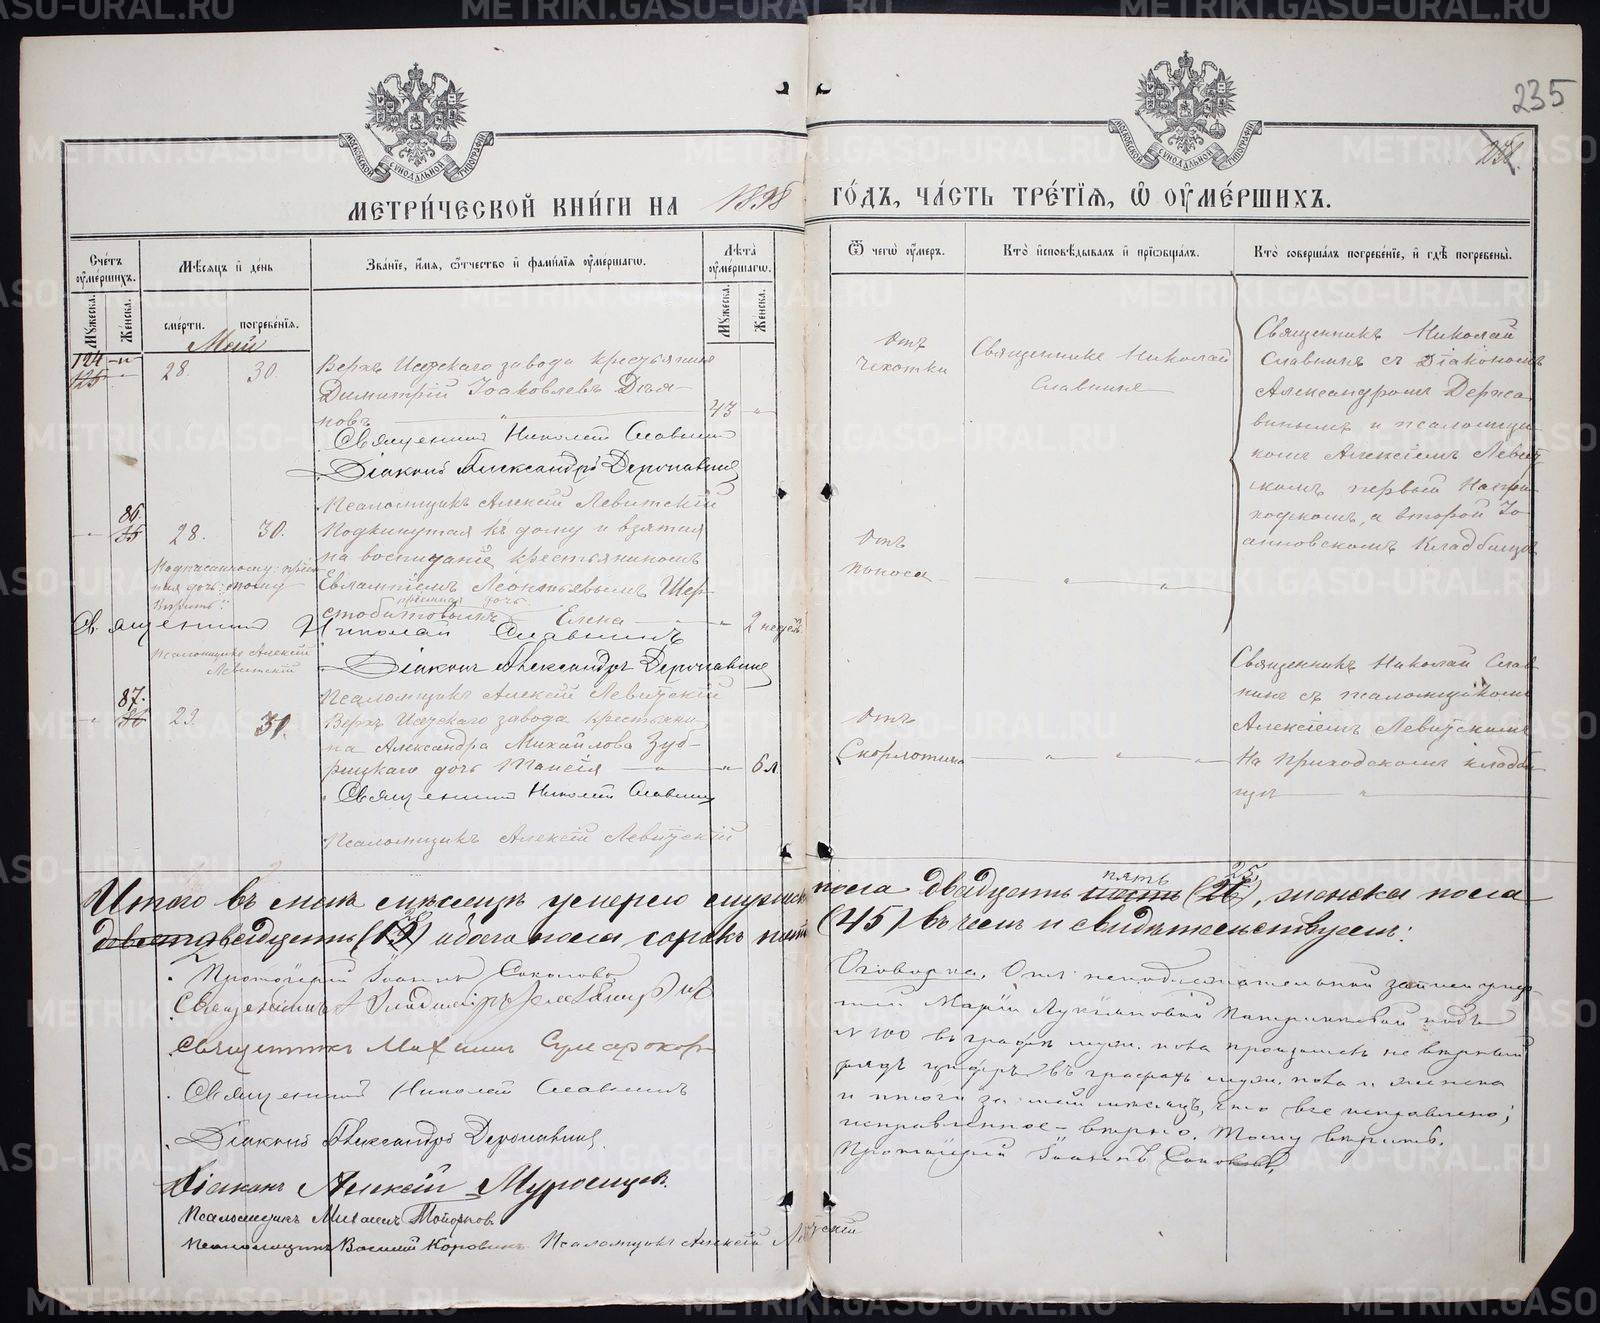 235
МЕТРИ́ЧЕСКОЙ КНИ́ГИ НА 1898 ГО́ДЪ, ЧА́СТЬ ТРЕ́ТІѦ, Ѽ ОУ҆МЕ́РШИХЪ.
МОСКОВСКОЙ СѴНОДАЛЬНОЙ ТИПОГРАФІИ
МОСКОВСКОЙ СѴНОДАЛЬНОЙ ТИПОГРАФІИ
Сче́тъ оу҆ме́ршихъ.
Мꙋ́жеска.
Же́нска.
Мѣ́сѧцъ и҆ де́нь
сме́рти.
погребе́нїѧ.
Зва́нїе, и҆́мѧ, ѻ҆́тчество и҆ фами́лїѧ оу҆ме́ршагѡ.
Лѣ́та оу҆ме́ршагѡ.
Мꙋ́жеска.
Же́нска.
Ѿ чегѡ̀ оу҆́меръ.
Кто̀ и҆сповѣ́дывалъ и҆ прїѡбща́лъ.
Кто̀ соверша́лъ погребе́нїе, и҆ гдѣ̀ погребены̀.
Май
124 125 28 30 Верхъ Исетскаго завода крестьянинъ
Димитрій Іоакововлевъ Дья-
новъ 43
Священникъ Николай Славнинъ
Діаконъ Александръ Державинъ
Псаломщикъ Алексій Левитскій
Отъ
чахотки
Священникъ Николай
Славнинъ
Священникъ Николай
Славнинъ съ Діакономъ
Александромъ Держа-
винымъ и псаломщи-
комъ Алексіемъ Левит-
скимъ первый На при-
ходскомъ, а второй Іо-
анновскомъ Кладбище
86 85 28. 30. Подкинутая къ дому и взятая
на воспитаніе крестьяниномъ
Евлампіемъ Леонтьевымъ Шер-
стобитовымъ
пріемная дочь
Елена 2 недѣл.
Отъ
поноса
Священникъ Николай Славнинъ
Псаломщикъ Алексій
Левитскій
Діаконъ Александръ Державинъ
Псаломщикъ Алексій Левитскій
87. 86 29. 31. Верхъ Исетскаго завода крестьяни-
на Александра Михайлова Зуб-
рицкаго дочь Таисія 6 л.
Священникъ Николай Славнинъ
Псаломщикъ Алексій Левитскій
Отъ
Скорлотины
Священникъ Николай Слав-
нинъ съ псаломщикомъ
Алексіемъ Левитскимъ
На Приходскомъ кладби-
щѣ
Итого въ маѣ мѣсяцѣ умерло мужска пола двадцать шесть пять (26) 25, женска пола
двадцать обоего пола сорокъ пять (45) въ чемъ и свидѣтельствуемъ:
Протоіерей Іоаннъ Соколовъ
Священникъ Владиміръ
Священникъ Михаилъ Сумароковъ
Священникъ Николай Славнинъ
Діаконъ Александръ Державинъ.
Діаконъ Алексій Муромцевъ.
Псаломщикъ Михаилъ Топорковъ
Псаломщикъ Василій Коровинъ. Псаломщикъ Алексій Левитскій
Оговорка. Отъ неподлежательной записи умер-
шей Маріи Лукіановой подъ
№ 100 въ графѣ муж. пола произошелъ не вѣрный
рядъ цифръ въ графахъ муж. пола и женска
и итоги за май мѣсяцъ, что все исправлено;
исправленное – вѣрно. Тому вѣрить.
Протоіерей Іоаннъ Соколовъ.
METRIKI.GASO-URAL.RU